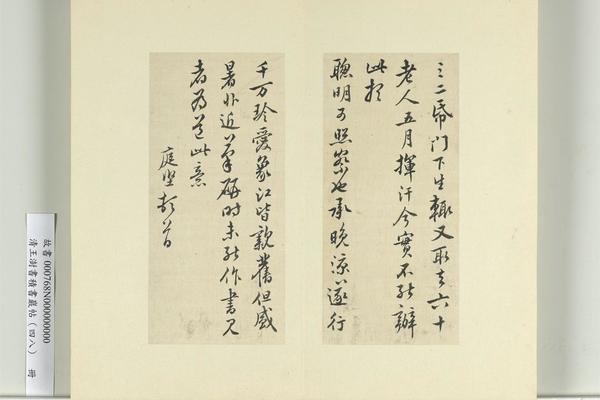 三二帋門下生輒又取去六十
老人五月揮汗今實不能辦
此想
聰明可照察也承晚涼遂行
千万珍愛象江皆親舊但盛
暑非近筆研時未能作書見
者為道此意
庭堅頓首
故書 000768N00000000
清王澍書積書巖帖（四八） 冊